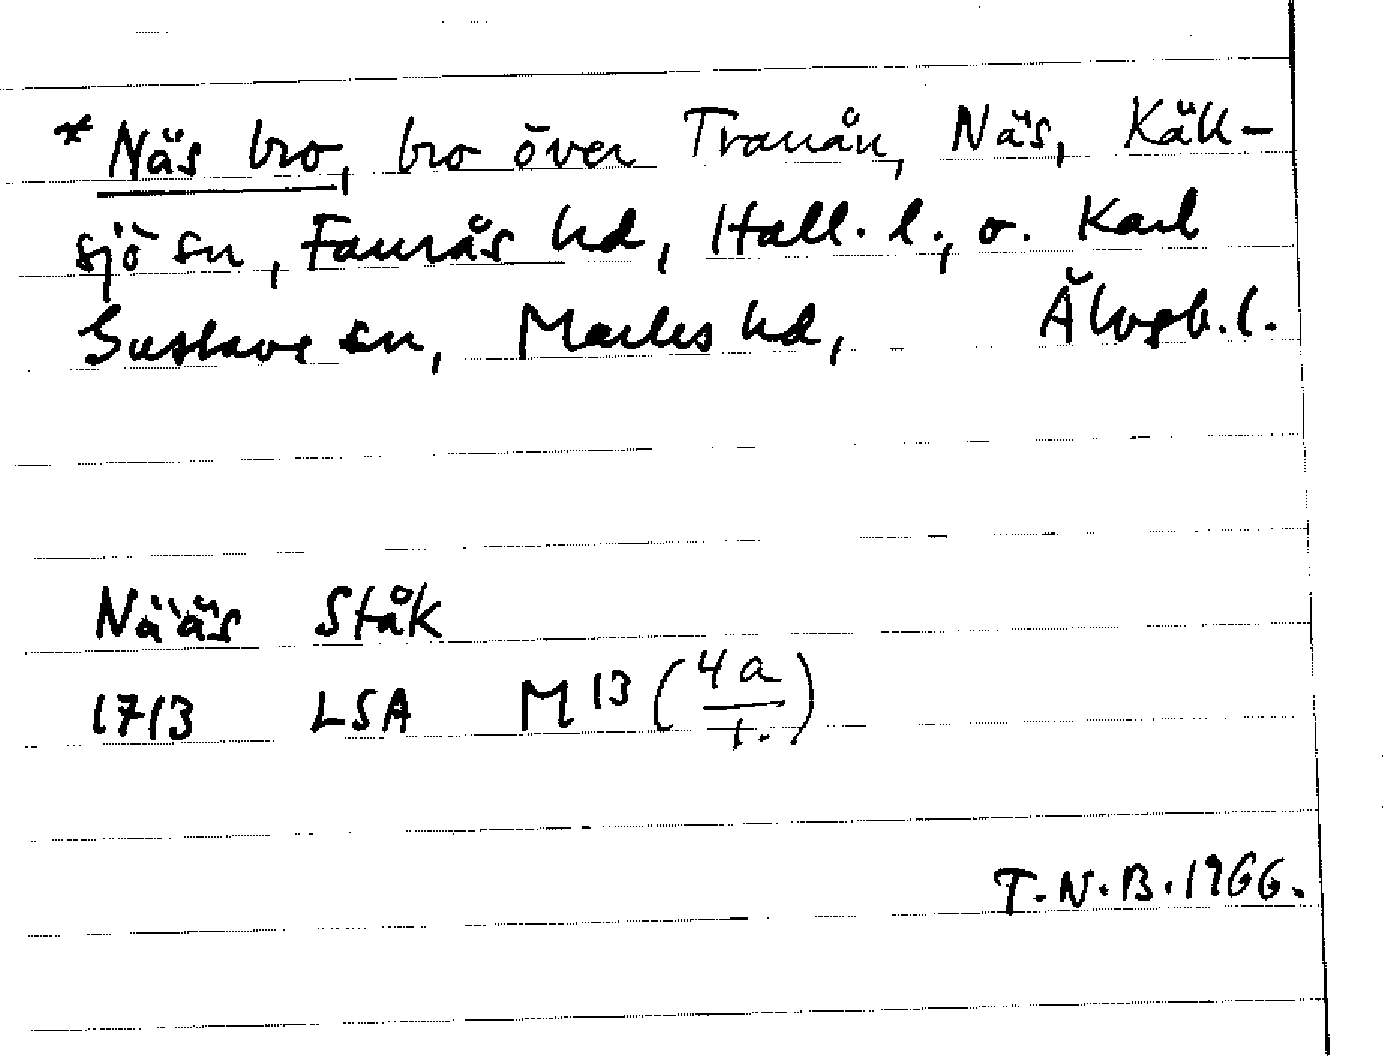 * Näs bro, bro över Tranån, Näs, Käll-
sjö sn, Faurås hd, Hall. l., o. Karl
Gustavs sn, Marks hd, Älvsb. l.
Nääs Ståk
1713 LSA M13 (4a/1.)
T.N.B. 1966.